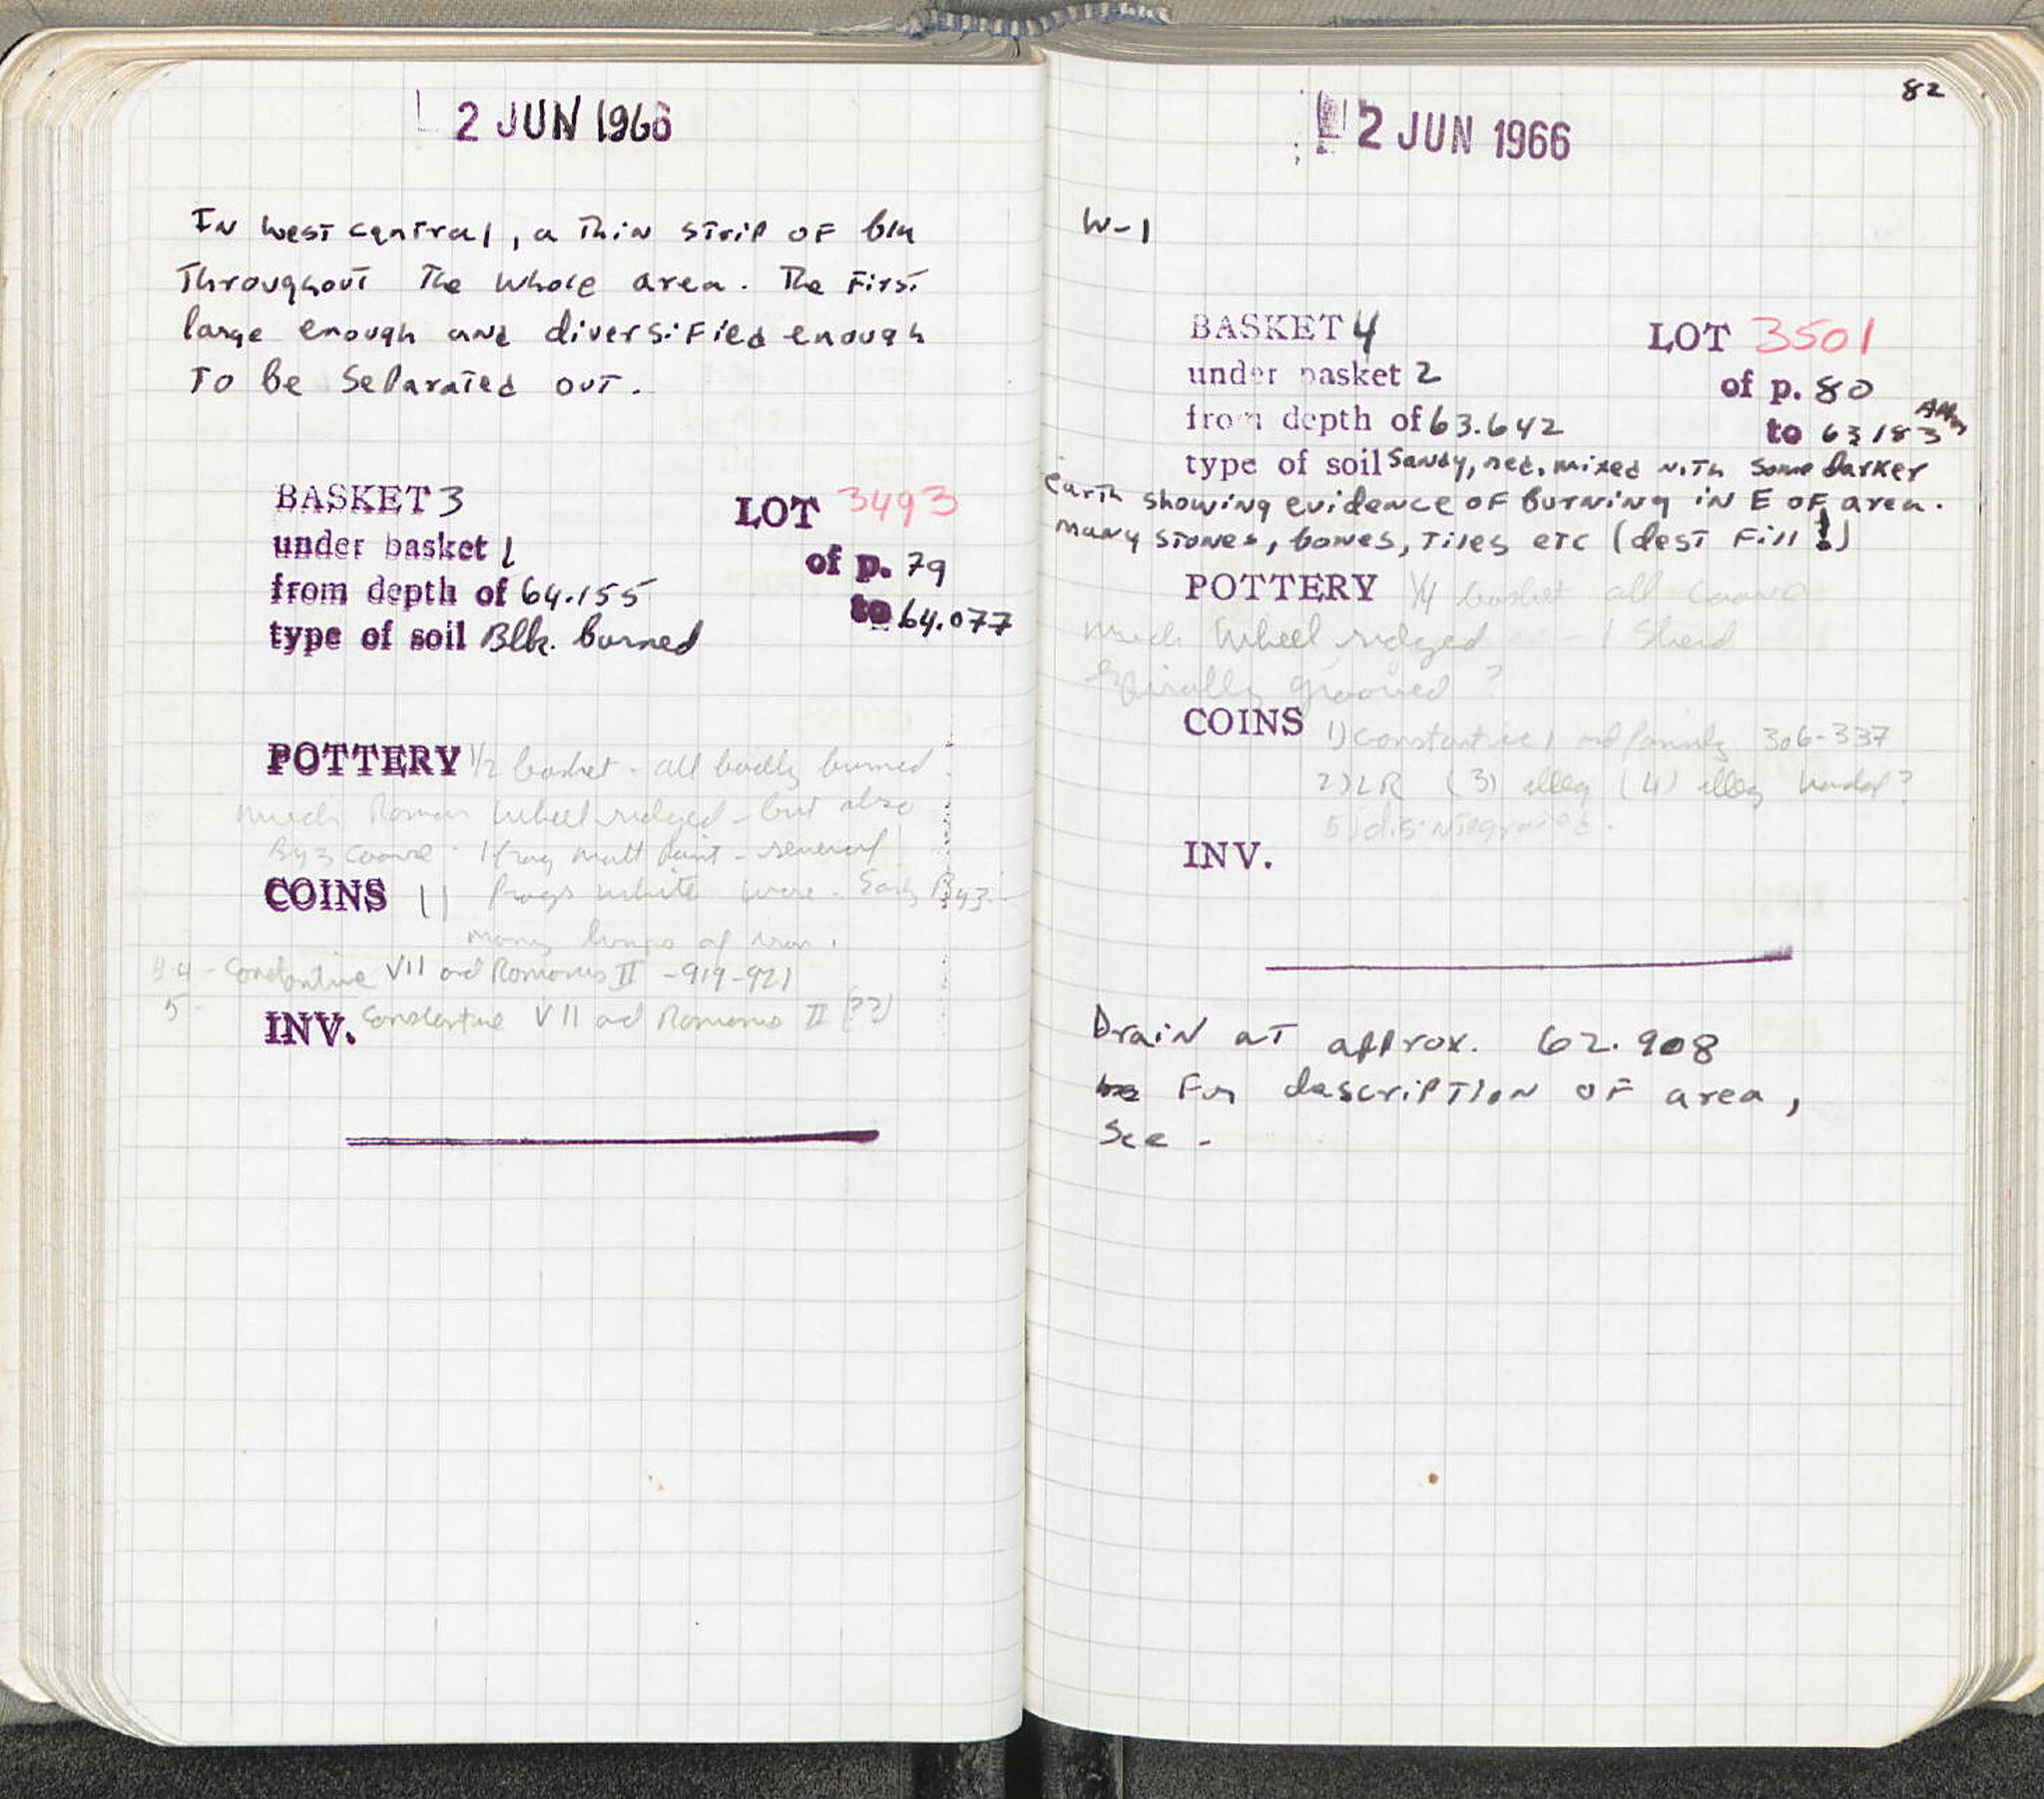 2 JUN 1966
In west central, a thin strip of blk
throughout the whole area. The first
large enough and diversified enough
to be separated out.
BASKET 3 LOT 3493
under basket 1 of p. 79
from depth of 64.155 to 64.077
type of soil Blk. burned
POTTERY 1/2 basket - all badly burned
much Roman wheel ridged - but also
Byz coarse. 1 frag matt paint - several
COINS 11 frags white ware. Early Byz.
many lumps of iron.
4 - Constantine VII and Romanus II - 919-921
5 -
INV. Constantine VII and Romanus II (??)
82
2 JUN 1966
W-1
BASKET 4 LOT 3501
under basket 2 of p. 80
from depth of 63.642 to 63183
type of soil Sandy, red, mixed with some darker
earth showing evidence of burning in E of area.
many stones, bones, tiles etc (dest fill!)
POTTERY 1/4 basket all coarse
much wheel ridged - 1 sherd
Spirally grooved ?
COINS 1) Constantine I and family 306-337
2) LR (3) illeg (4) illeg Vandal?
5) disintegrated.
INV.
Drain at approx. 62.908
For description of area,
see -